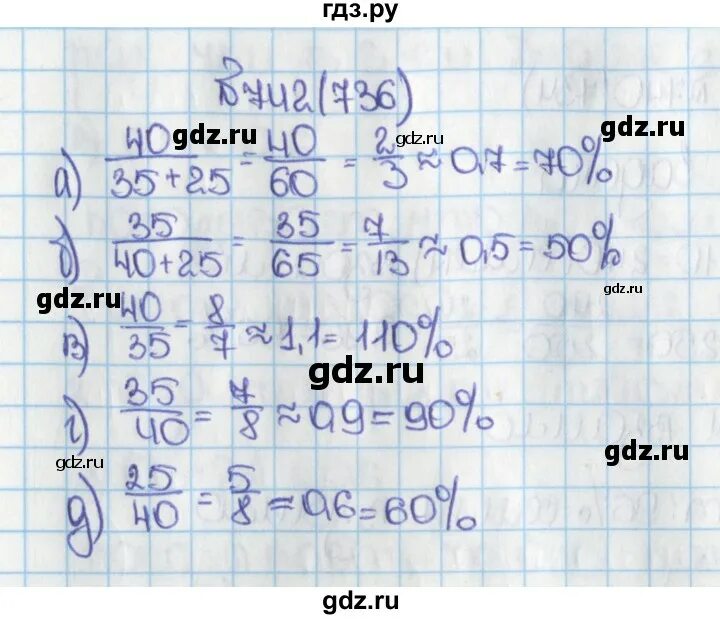 гдз.ру
№742(736)
gdz.ru gdz.ru gdz.ru
а) 40/(35+25) = 40/60 = 2/3 ≈ 0,7 = 70%
б) 35/(40+25) = 35/65 = 7/13 ≈ 0,5 = 50%
gdz.ru gdz.ru
в) 40/35 = 8/7 ≈ 1,1 = 110%
gdz.ru
г) 35/40 = 7/8 ≈ 0,9 = 90%
gdz.ru gdz.ru
д) 25/40 = 5/8 ≈ 0,6 = 60%
gdz.ru